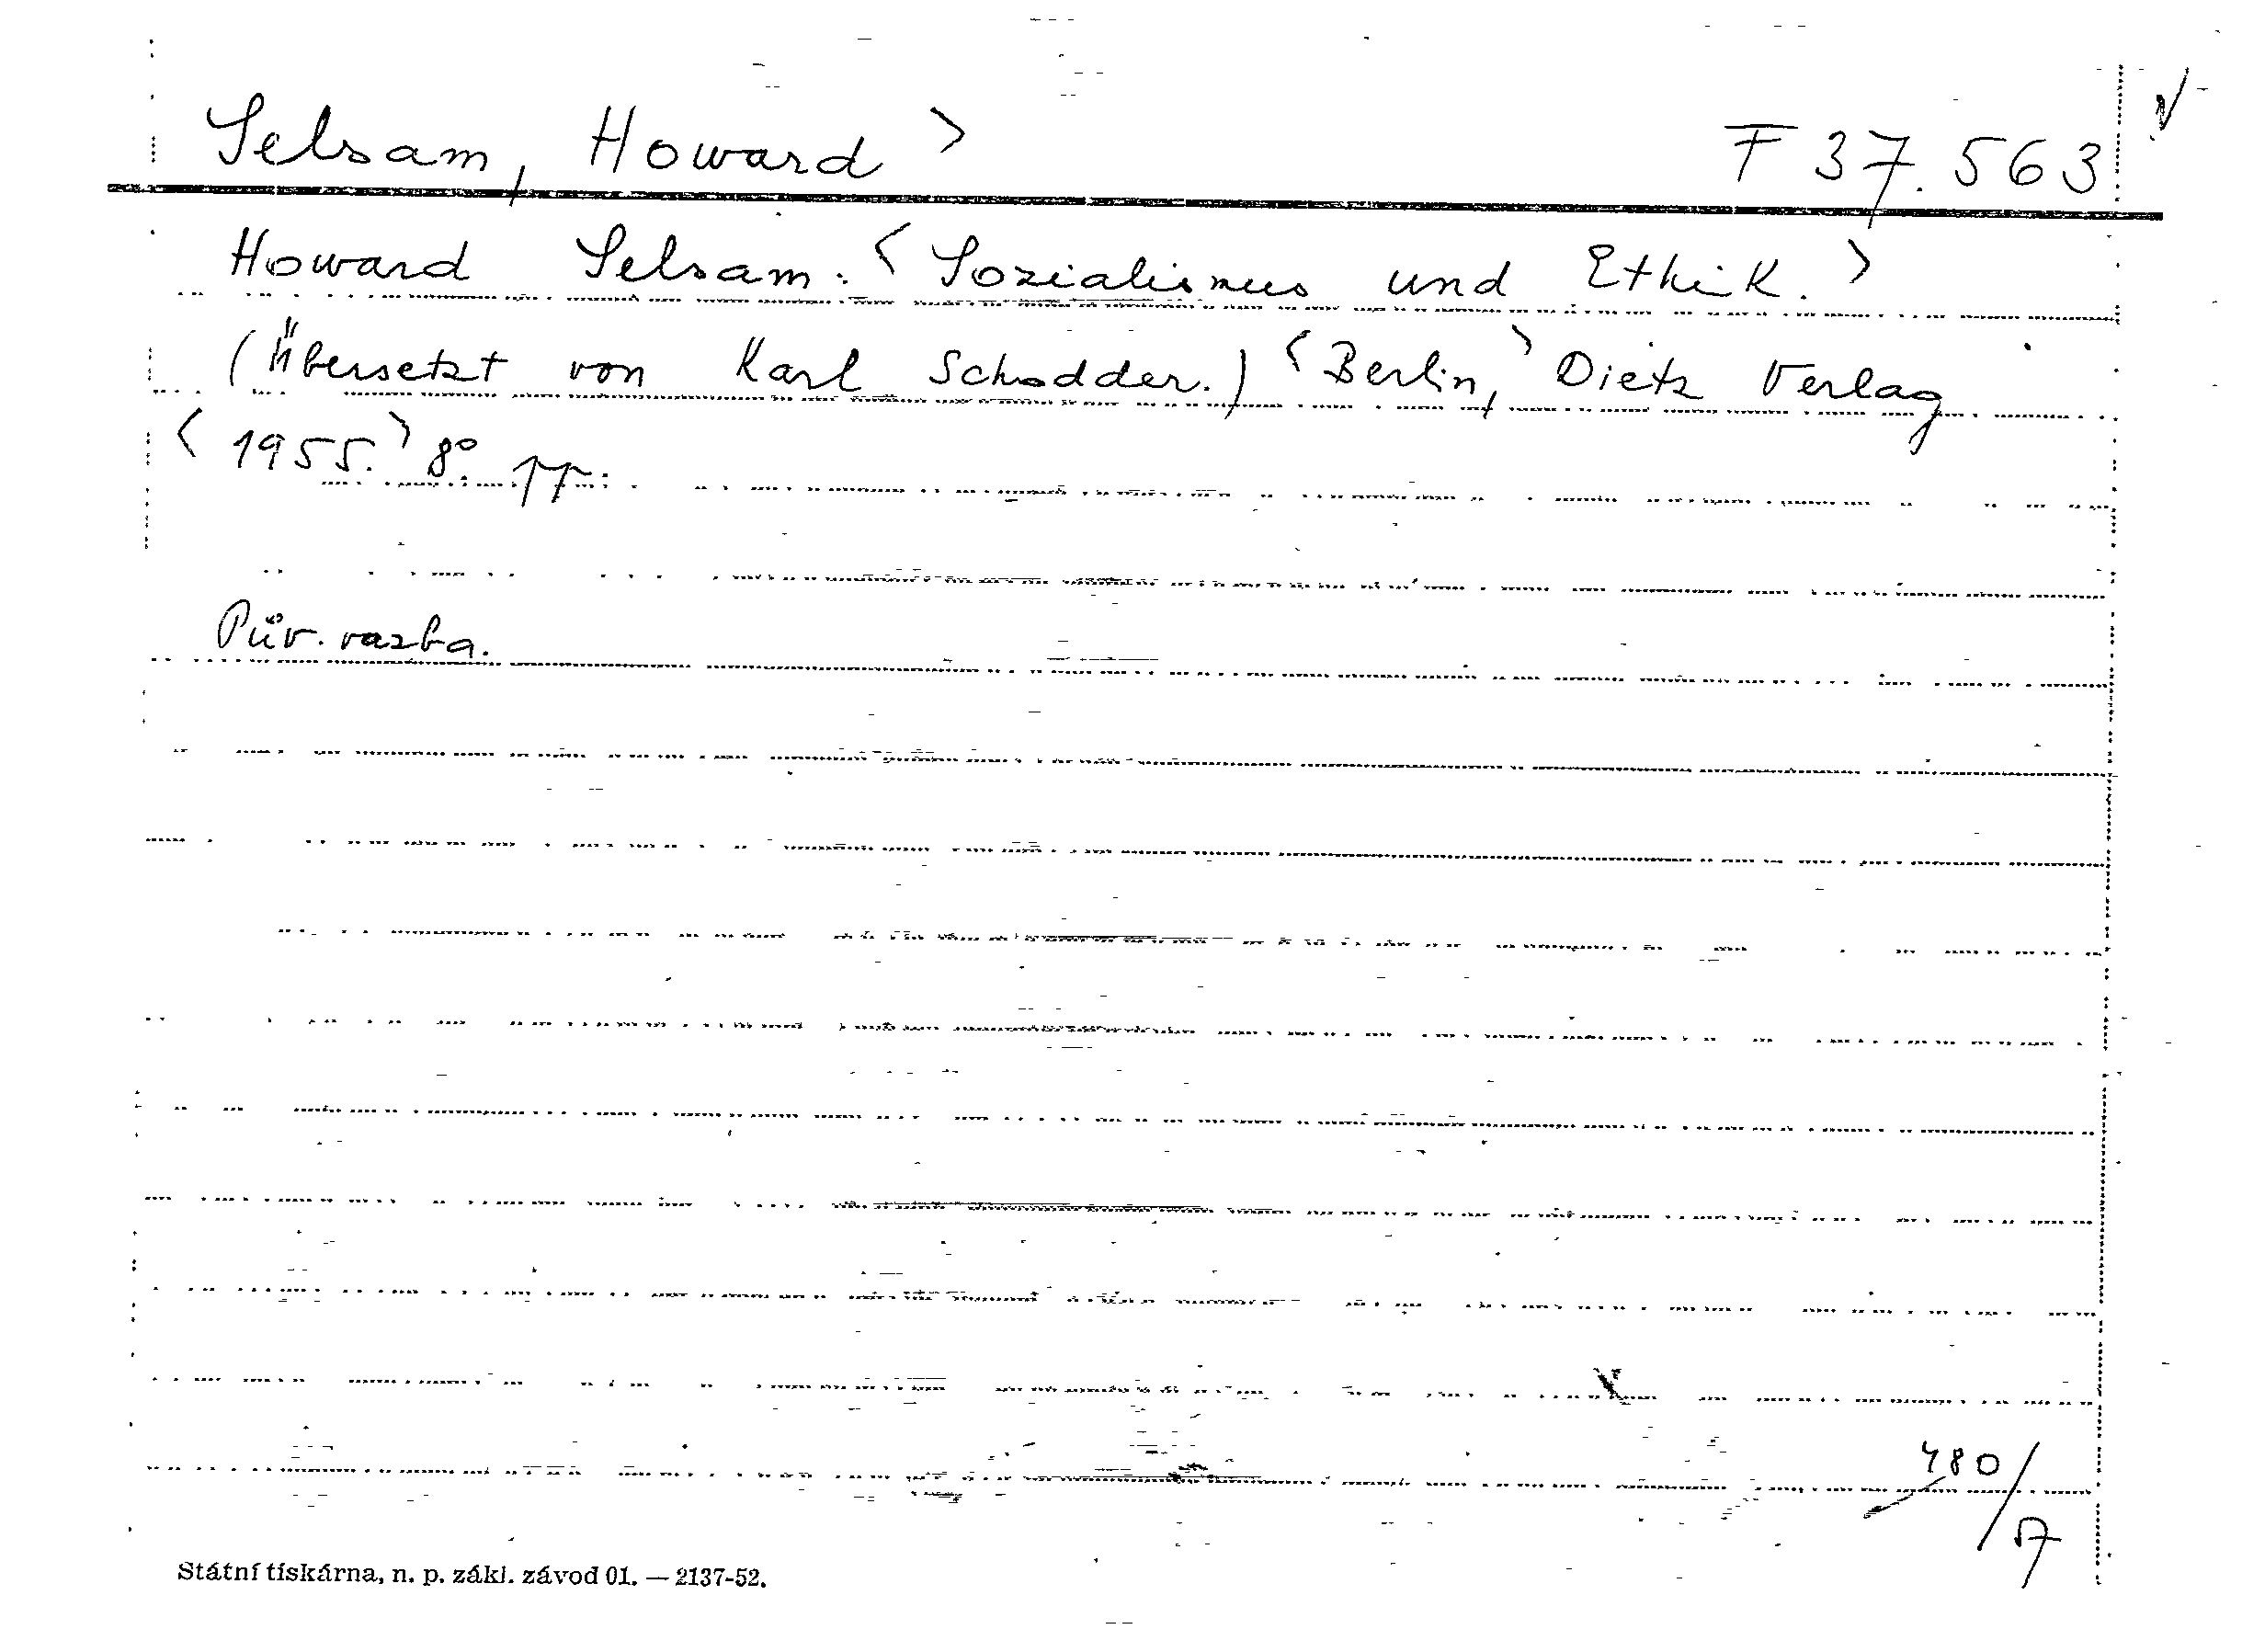 Selsam, Howard > F 37.563
Howard Selsam: < Sozialismus und Ethik. >
(Übersetzt von Karl Schodder.) < Berlin, > Dietz Verlag
< 1955. > 8°. pp.
Pův. vazba.
480/
Státní tiskárna, n. p. zákl. závod 01. — 2137-52.